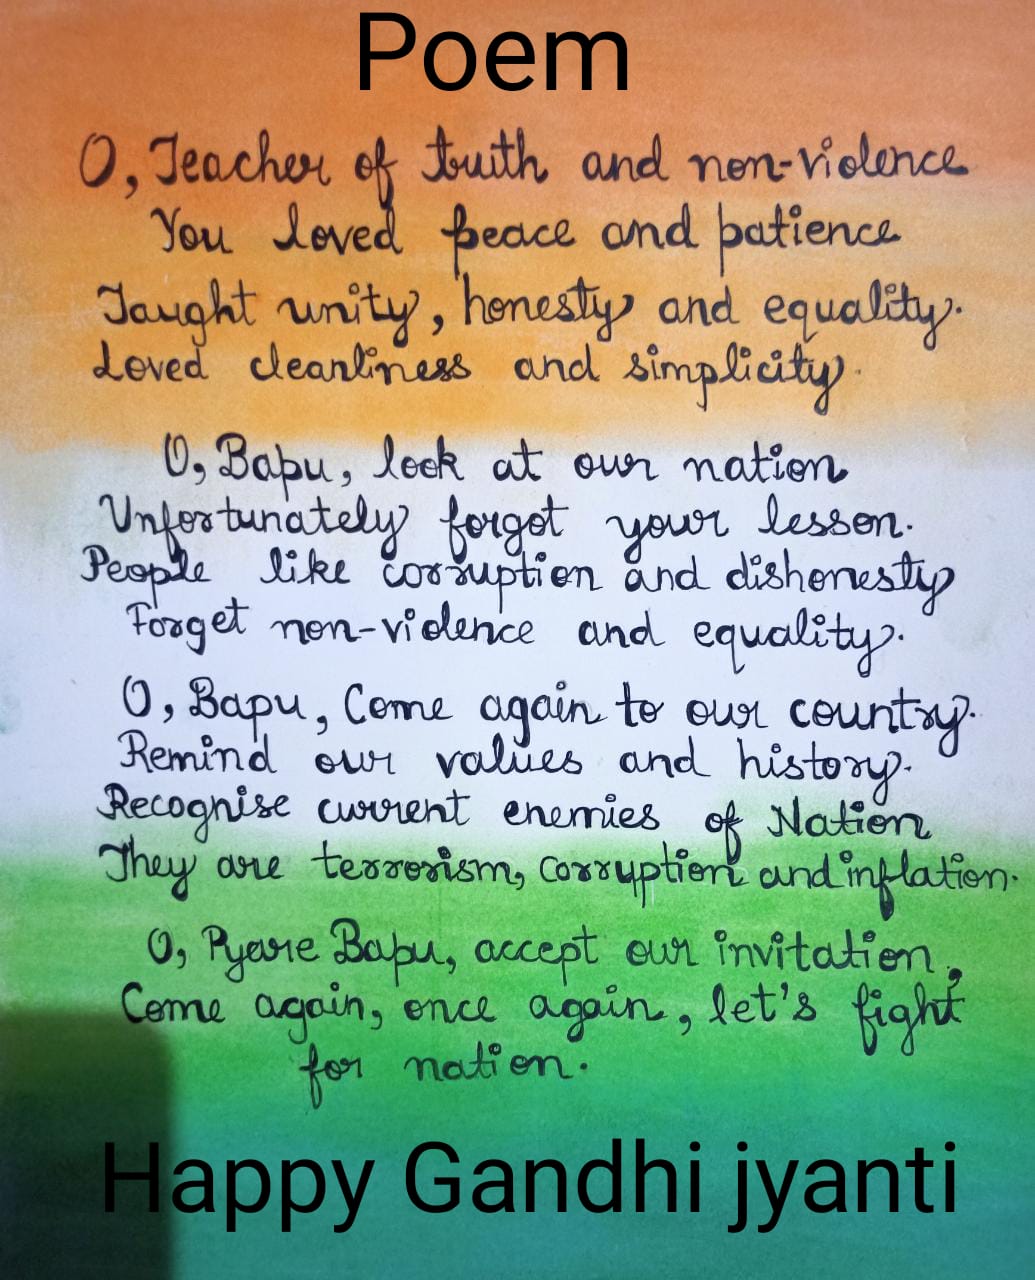 Poem
O, Teacher of truth and non-violence
You loved peace and patience
Taught unity, honesty and equality.
Loved cleanliness and simplicity.
O, Bapu, look at our nation
Unfortunately forgot your lesson.
People like corruption and dishonesty
Forget non-violence and equality.
O, Bapu, Come again to our country.
Remind our values and history.
Recognise current enemies of Nation
They are terrorism, corruption and inflation.
O, Pyare Bapu, accept our invitation,
Come again, once again, let's fight
for nation.
Happy Gandhi jyanti